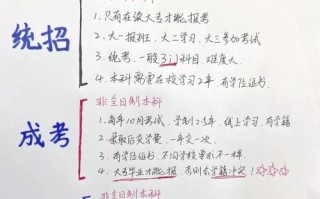 统招
1. 只有在读大专才能报考
2. 大一报班、大二学习、大三参加考试
3. 统考,一般3门科目,难度大
4. 本科需在校学习2年,有学位证书
非全日制本科
成考
1. 每年10月考试,学制2.5年,线上学习,有学籍
2. 录取后交学费,一年交一次
3. 有学位证书,不同学校要求不一样
4. 大专毕业才能报,否则会学籍冲突!☆☆☆
非全日制本科